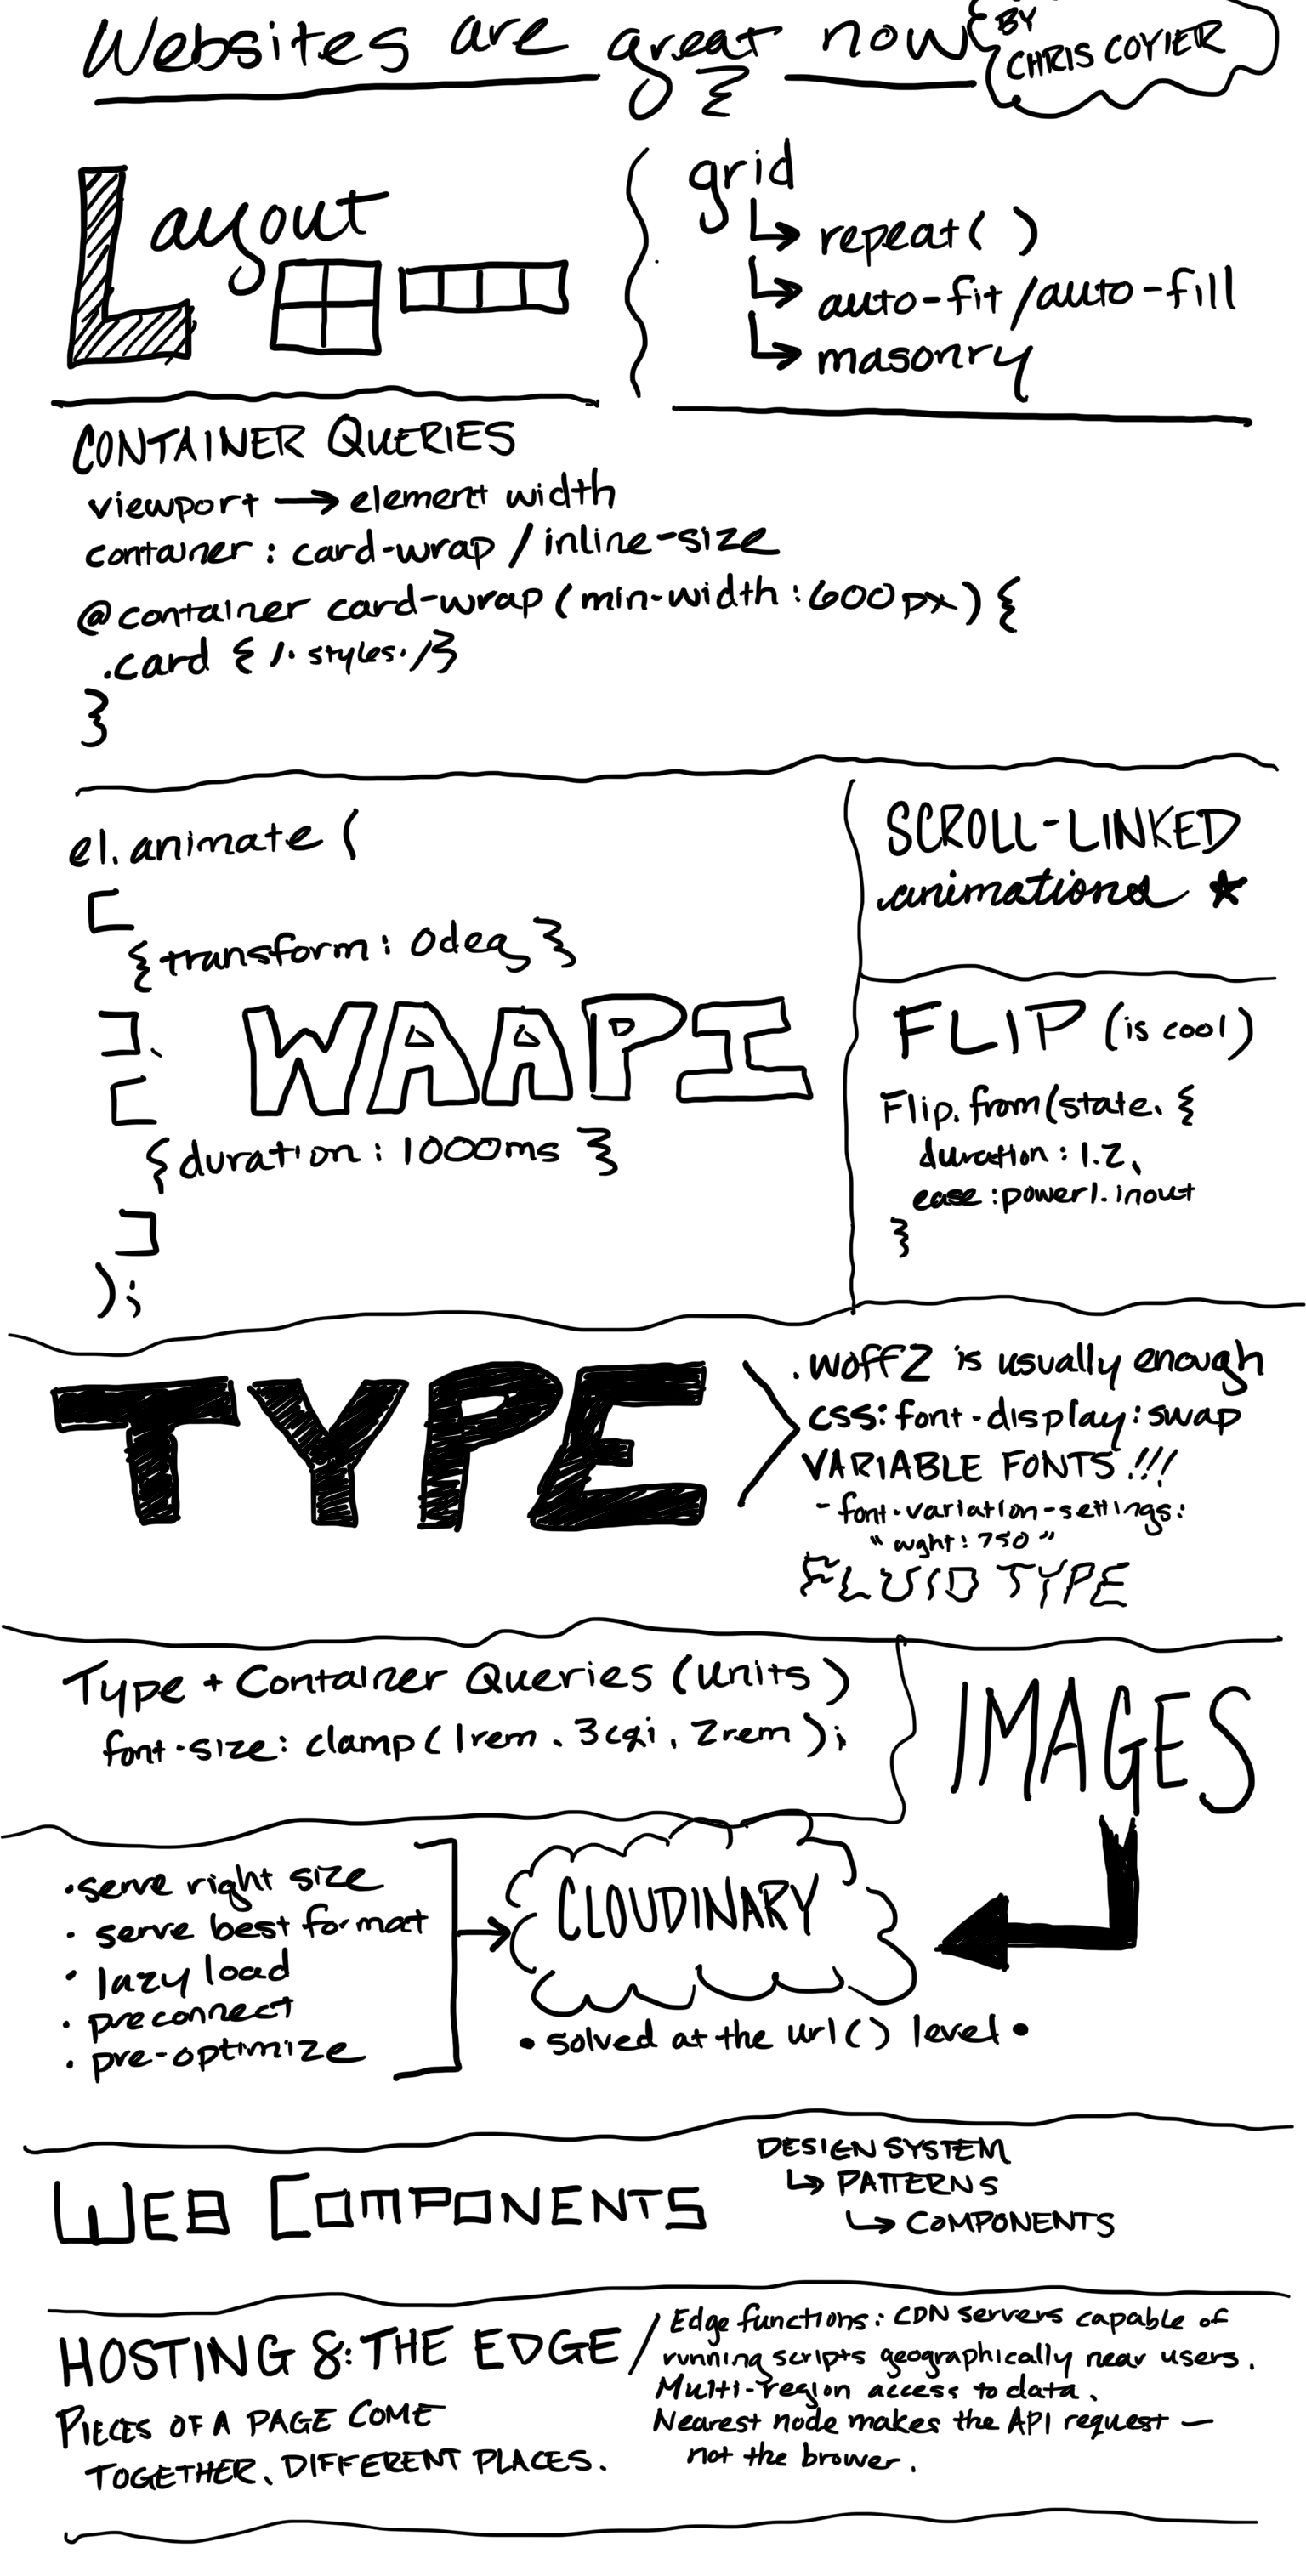 Websites are great now
BY
CHRIS COYIER
Layout
grid
repeat( )
auto-fit/auto-fill
masonry
CONTAINER QUERIES
viewport → element width
container: card-wrap / inline-size
@container card-wrap (min-width: 600px) {
.card { /· styles· /}
}
el.animate (
[
{transform: 0deg }
],
WAAPI
[
{duration: 1000ms }
]
);
SCROLL-LINKED
animations ★
FLIP (is cool)
Flip.from(state, {
duration: 1.2,
ease: power1.inout
}
TYPE
.woff2 is usually enough
css: font-display: swap
VARIABLE FONTS!!!
- font-variation-settings:
"wght: 750"
FLUID TYPE
Type + Container Queries (units)
font-size: clamp(1rem, 3cqi, 2rem);
IMAGES
• serve right size
• serve best format
• lazy load
• preconnect
• pre-optimize
CLOUDINARY
• solved at the url() level •
WEB COMPONENTS
DESIGN SYSTEM
↳ PATTERNS
↳ COMPONENTS
HOSTING &: THE EDGE /
PIECES OF A PAGE COME
TOGETHER, DIFFERENT PLACES.
Edge functions: CDN servers capable of
running scripts geographically near users.
Multi-region access to data.
Nearest node makes the API request —
not the brower.